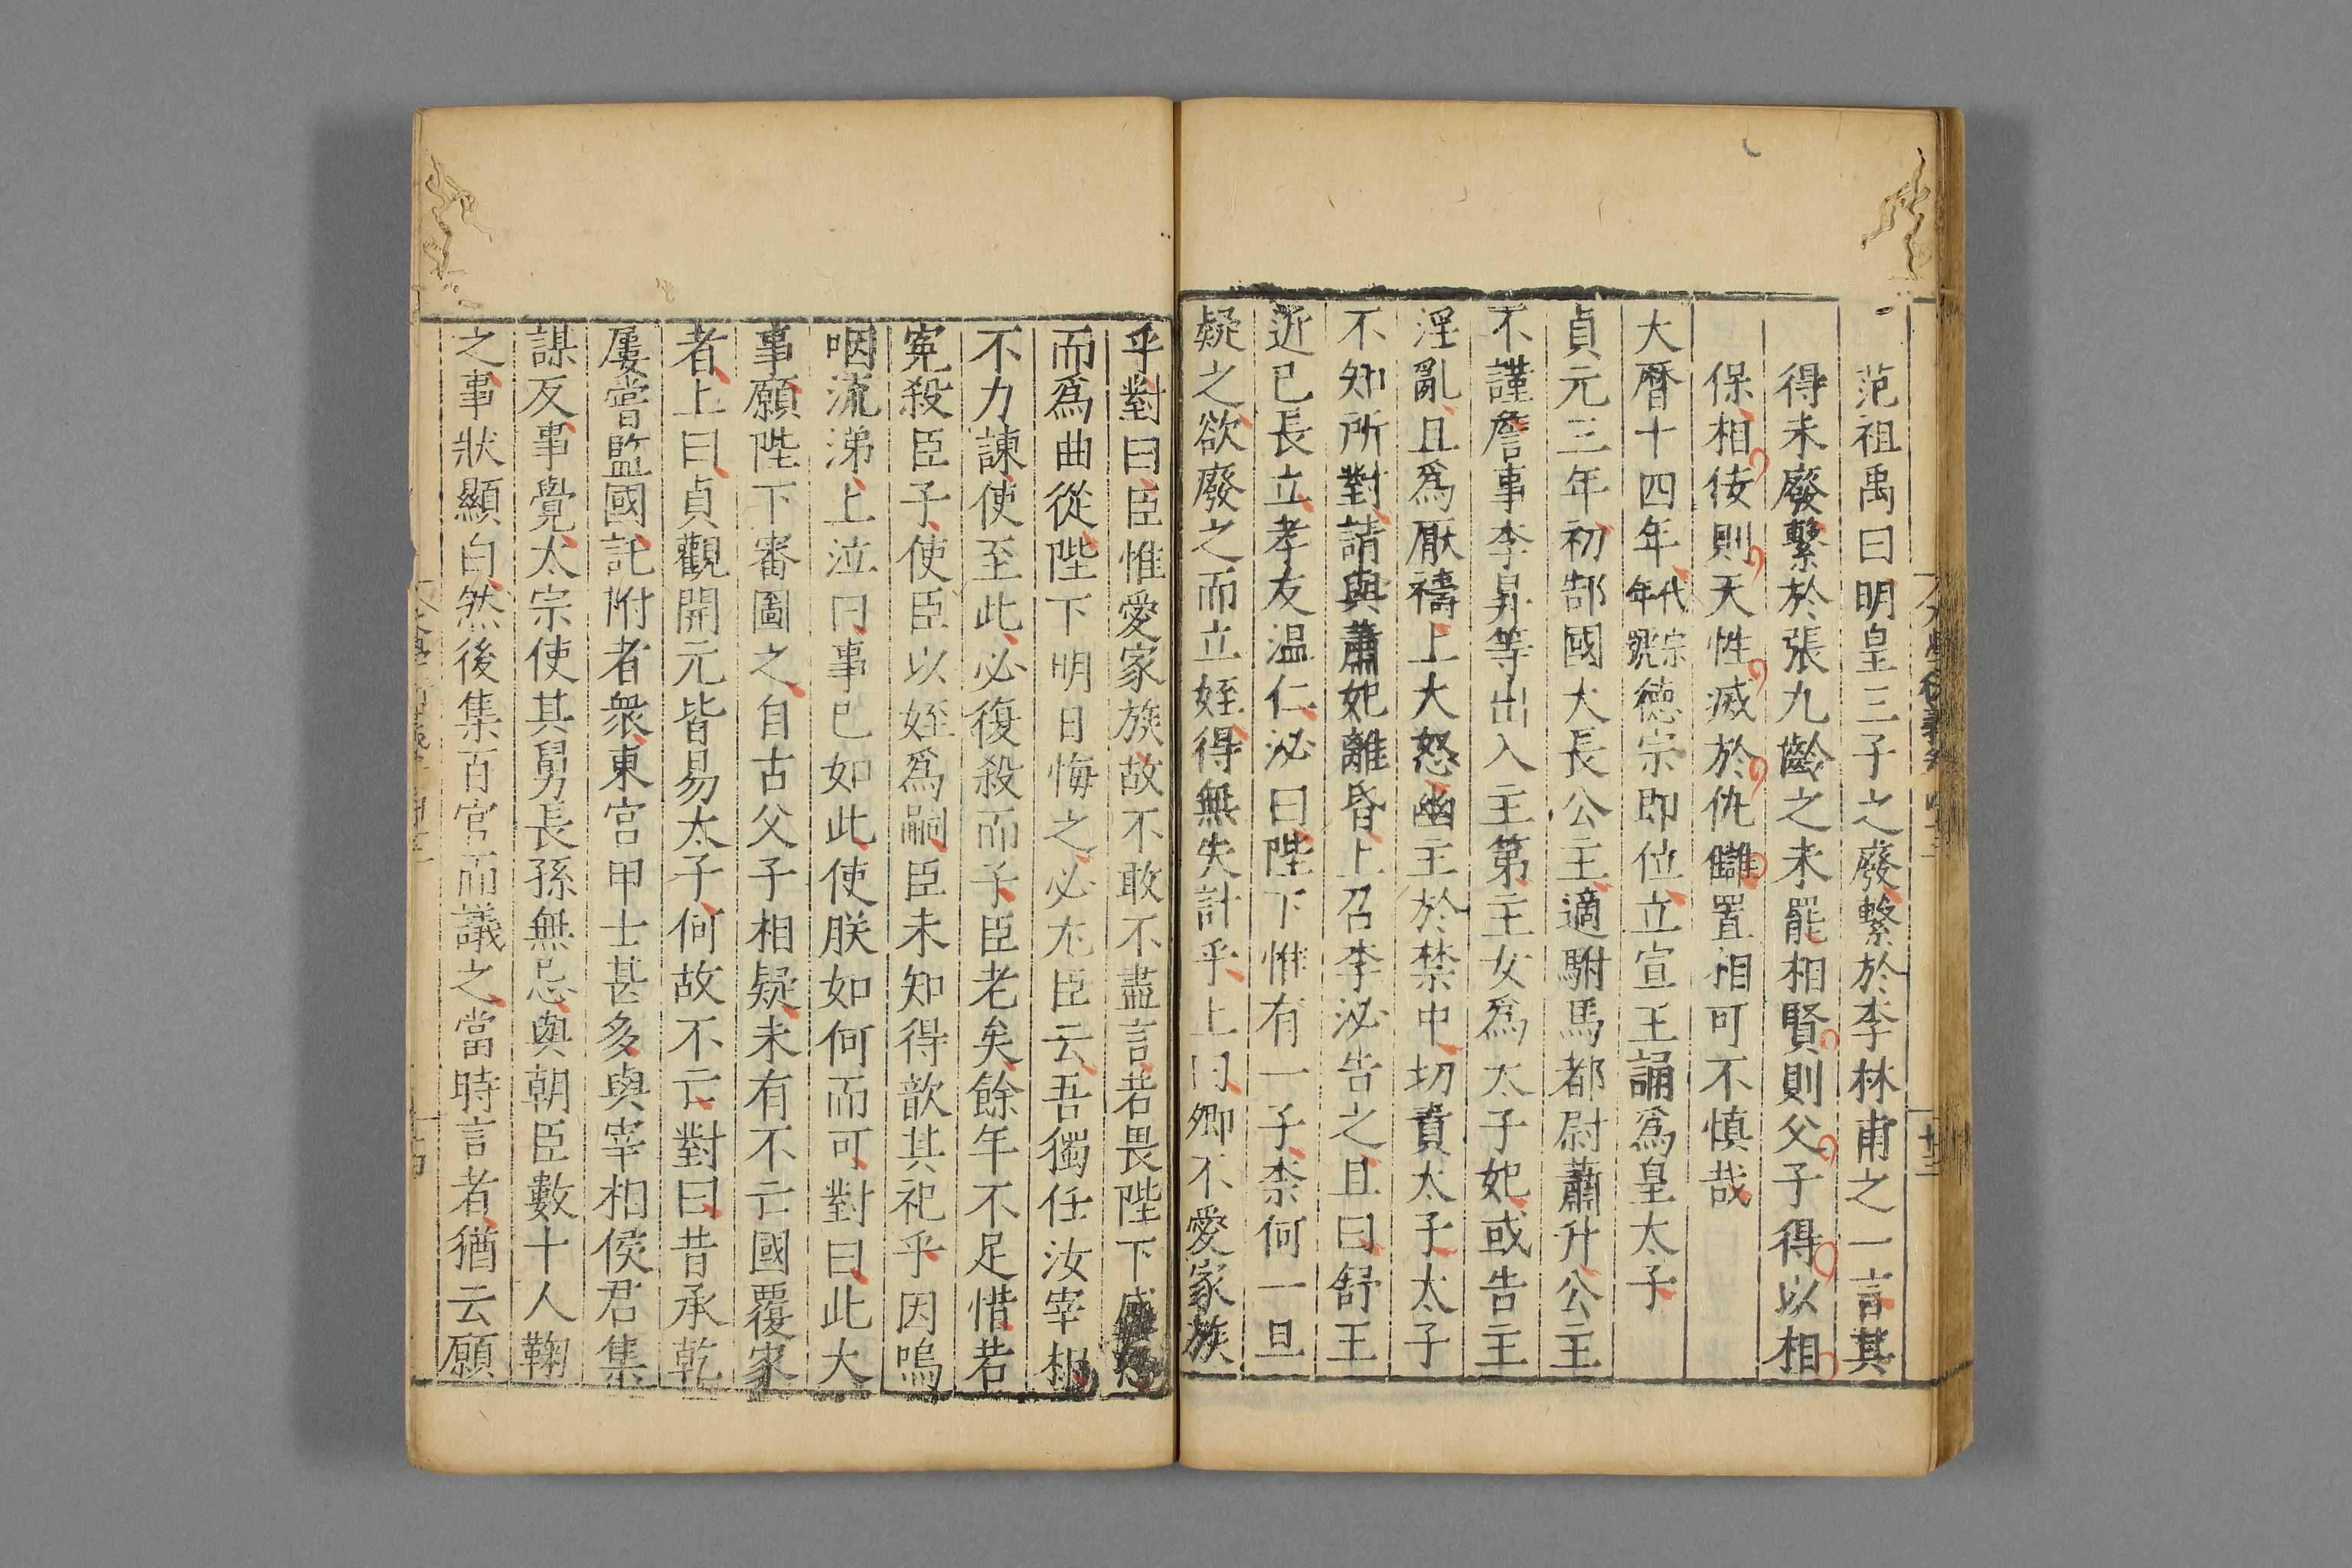 范祖禹曰明皇三子之廢繫於李林甫之一言其
得未廢繫於張九齡之未罷相賢則父子得以相
保相佞則天性滅於仇讎置相可不慎哉
大曆十四年代宗年號德宗即位立宣王誦爲皇太子
貞元三年初郜國大長公主適駙馬都尉蕭升公主
不謹詹事李昇等出入主第主女爲太子妃或告主
淫亂且爲厭禱上大怒幽主於禁中切責太子太子
不知所對請與蕭妃離昏上召李泌告之且曰舒王
近已長立孝友温仁泌曰陛下惟有一子柰何一旦
疑之欲廢之而立姪得無失計乎上曰卿不愛家族
乎對曰臣惟愛家族故不敢不盡言若畏陛下盛怒
而爲曲從陛下明日悔之必尤臣云吾獨任汝宰相
不力諫使至此必復殺而子臣老矣餘年不足惜若
寃殺臣子使臣以姪爲嗣臣未知得歆其祀乎因嗚
咽流涕上泣曰事已如此使朕如何而可對曰此大
事願陛下審圖之自古父子相疑未有不亡國覆家
者上曰貞觀開元皆易太子何故不亡對曰昔承乾
屢嘗監國託附者衆東宮甲士甚多與宰相侯君集
謀反事覺太宗使其舅長孫無忌與朝臣數十人鞠
之事狀顯白然後集百官而議之當時言者猶云願